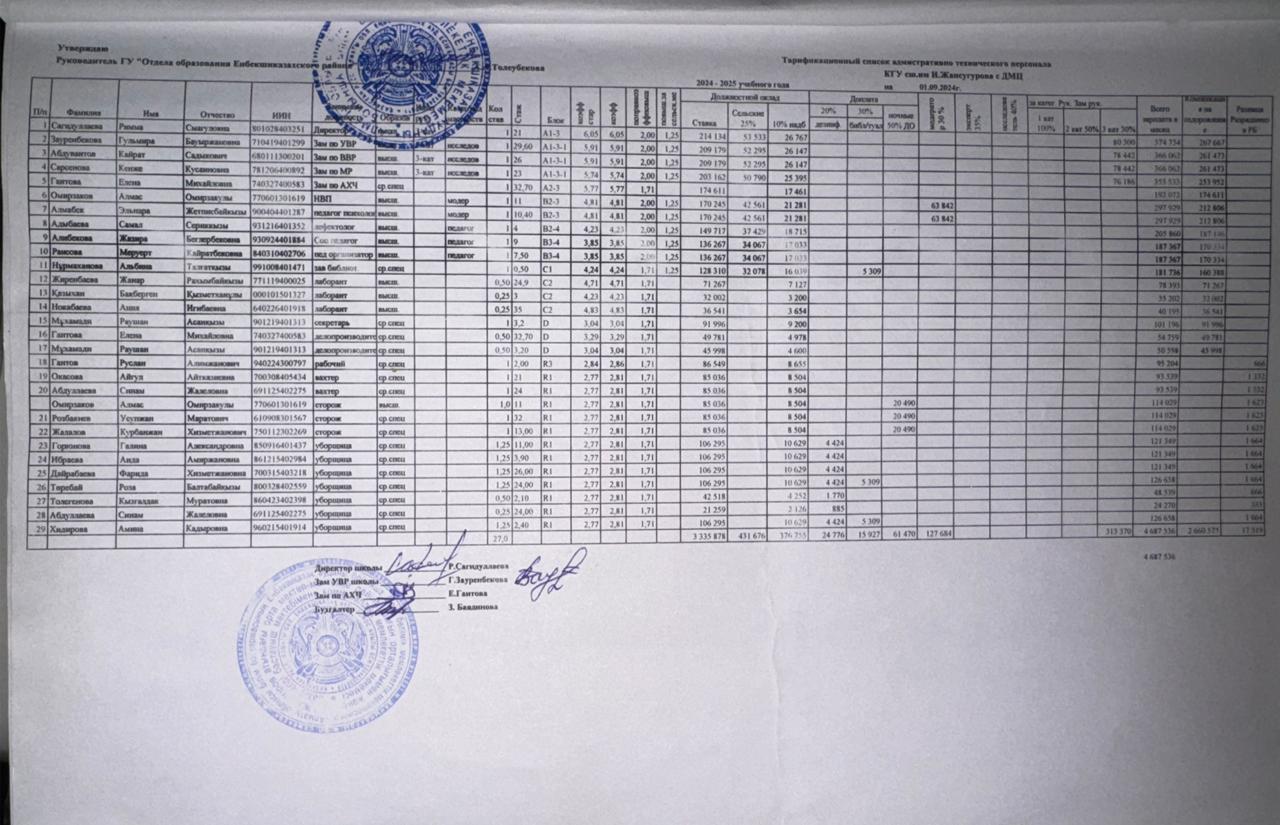 Утверждаю
Руководитель ГУ "Отдела образования Енбекшиказахского района Толеубекова
Тарификационный список административно технического персонала
КГУ сш.им И.Жансугурова с ДМЦ
2024 - 2025 учебного года на 01.09.2024г.
П/п Фамилия Имя Отчество ИИН Кол став Стаж Блок коэфф стар коэфф Должностной оклад Доплата за катег Рук. Зам рук. Всего зарплата в месяц
Ставка Сельские 25% 10% надб 20% дезинф 30% библ/тукл ночные 50% ДО модерато р 30 % эксперт 35% 1 кат 100% 2 кат 50% 3 кат 30%
1 Сагидуллаева Римма Смагуловна 801028403251 Директор 1 21 A1-3 6,05 6,05 2,00 1,25 214 134 53 533 26 767 80 300 374 734 267 667
2 Зауренбекова Гульмира Бауыржановна 710419401299 Зам по УВР исследов 1 29,60 A1-3-1 5,91 5,91 2,00 1,25 209 179 52 295 26 147 78 442 366 062 261 473
3 Абдувантов Кайрат Садыкович 680111300201 Зам по ВВР высш. 3-кат исследов 1 26 A1-3-1 5,91 5,91 2,00 1,25 209 179 52 295 26 147 78 442 366 062 261 473
4 Сарсенова Кенже Кусаиновна 781206400892 Зам по МР высш. 3-кат исследов 1 23 A1-3-1 5,74 5,74 2,00 1,25 203 162 50 790 25 395 76 186 355 533 253 952
5 Гантова Елена Михайловна 740327400583 Зам по АХЧ ср.спец 1 32,70 A2-3 5,77 5,77 1,71 174 611 17 461 192 072 174 611
6 Омирзаков Алмас Омирзакулы 770601301619 НВП высш. модер 1 11 B2-3 4,81 4,81 2,00 1,25 170 245 42 561 21 281 63 842 297 929 212 806
7 Алмабек Эльнара Жетписбайкызы 900404401287 педагог психолог высш. модер 1 10,40 B2-3 4,81 4,81 2,00 1,25 170 245 42 561 21 281 63 842 297 929 212 806
8 Адмбаева Самал Сериккызы 931216401352 дефектолог высш. педагог 1 4 B2-4 4,23 4,23 2,00 1,25 149 717 37 429 18 715 205 860
9 Алибекова Жазира Беглербековна 930924401884 Соц педагог высш. педагог 1 9 B3-4 3,85 3,85 2,00 1,25 136 267 34 067 17 033 187 367 170 334
10 Раисова Меруерт Кайратбековна 840310402706 пед организатор высш. педагог 1 7,50 B3-4 3,85 3,85 2,00 1,25 136 267 34 067 17 033 187 367 170 334
11 Нурмаханова Альбина Талгаткызы 991008401471 зав библиот ср.спец 1 0,50 C1 4,24 4,24 1,71 1,25 128 310 32 078 16 039 5 309 181 736 160 388
12 Жиренбаева Жанар Рахымбайкызы 771119400025 лаборант высш. 0,50 24,9 C2 4,71 4,71 1,71 71 267 7 127 78 393 71 267
13 Қазыхан Бакберген Қызметханұлы 000101501327 лаборант высш. 0,25 3 C2 4,23 4,23 1,71 32 002 3 200 35 202 32 002
14 Нокабаева Алия Игибаевна 640226401918 лаборант высш. 0,25 35 C2 4,83 4,83 1,71 36 541 3 654 40 195 36 541
15 Мұхамади Раушан Асанқызы 901219401313 секретарь ср.спец 1 3,2 D 3,04 3,04 1,71 91 996 9 200 101 196 91 996
16 Гантова Елена Михайловна 740327400583 делопроизводите ср.спец 0,50 32,70 D 3,29 3,29 1,71 49 781 4 978 54 759 49 781
17 Мұхамади Раушан Асанқызы 901219401313 делопроизводите ср.спец 0,50 3,20 D 3,04 3,04 1,71 45 998 4 600 50 598 45 998
18 Гантов Руслан Алимжанович 940224300797 рабочий ср.спец 1 2,00 R3 2,84 2,86 1,71 86 549 8 655 95 204 666
19 Окасова Айгул Айтказиевна 700308405434 вахтер ср.спец 1 21 R1 2,77 2,81 1,71 85 036 8 504 93 539 1 332
20 Абдуллаева Синам Жалеловна 691125402275 вахтер ср.спец 1 24 R1 2,77 2,81 1,71 85 036 8 504 93 539 1 332
Омирзаков Алмас Омирзакулы 770601301619 сторож высш. 1,0 11 R1 2,77 2,81 1,71 85 036 8 504 20 490 114 029 1 623
21 Розбакиев Усупжан Маратович 610908301567 сторож ср.спец 1 32 R1 2,77 2,81 1,71 85 036 8 504 20 490 114 029 1 623
22 Жалалов Курбанжан Хизметжанович 750112302269 сторож ср.спец 1 13,00 R1 2,77 2,81 1,71 85 036 8 504 20 490 114 029 1 623
23 Горюнова Галина Александровна 850916401437 уборщица ср.спец 1,25 11,00 R1 2,77 2,81 1,71 106 295 10 629 4 424 121 349 1 664
24 Ибраева Аида Амиржановна 861215402984 уборщица ср.спец 1,25 3,90 R1 2,77 2,81 1,71 106 295 10 629 4 424 121 349 1 664
25 Дайрабаева Фарида Хизметжановна 700315403218 уборщица ср.спец 1,25 26,00 R1 2,77 2,81 1,71 106 295 10 629 4 424 121 349 1 664
26 Төребай Роза Балтабайкызы 800328402559 уборщица ср.спец 1,25 24,00 R1 2,77 2,81 1,71 106 295 10 629 4 424 5 309 126 658 1 664
27 Толегенова Кызгалдак Муратовна 860423402398 уборщица ср.спец 0,50 2,10 R1 2,77 2,81 1,71 42 518 4 252 1 770 48 539 666
28 Абдуллаева Синам Жалеловна 691125402275 уборщица ср.спец 0,25 24,00 R1 2,77 2,81 1,71 21 259 2 126 885 24 270 333
29 Хидирова Амина Кадыровна 960215401914 уборщица ср.спец 1,25 2,40 R1 2,77 2,81 1,71 106 295 10 629 4 424 5 309 126 658 1 664
27,0 3 335 878 431 676 376 755 24 776 15 927 61 470 127 684 313 370 4 687 536 2 660 575 17 519
4 687 536
Директор школы Р.Сагидуллаева
Зам УВР школы Г.Зауренбекова
Зам по АХЧ Е.Гантова
Бухгалтер З. Баядинова